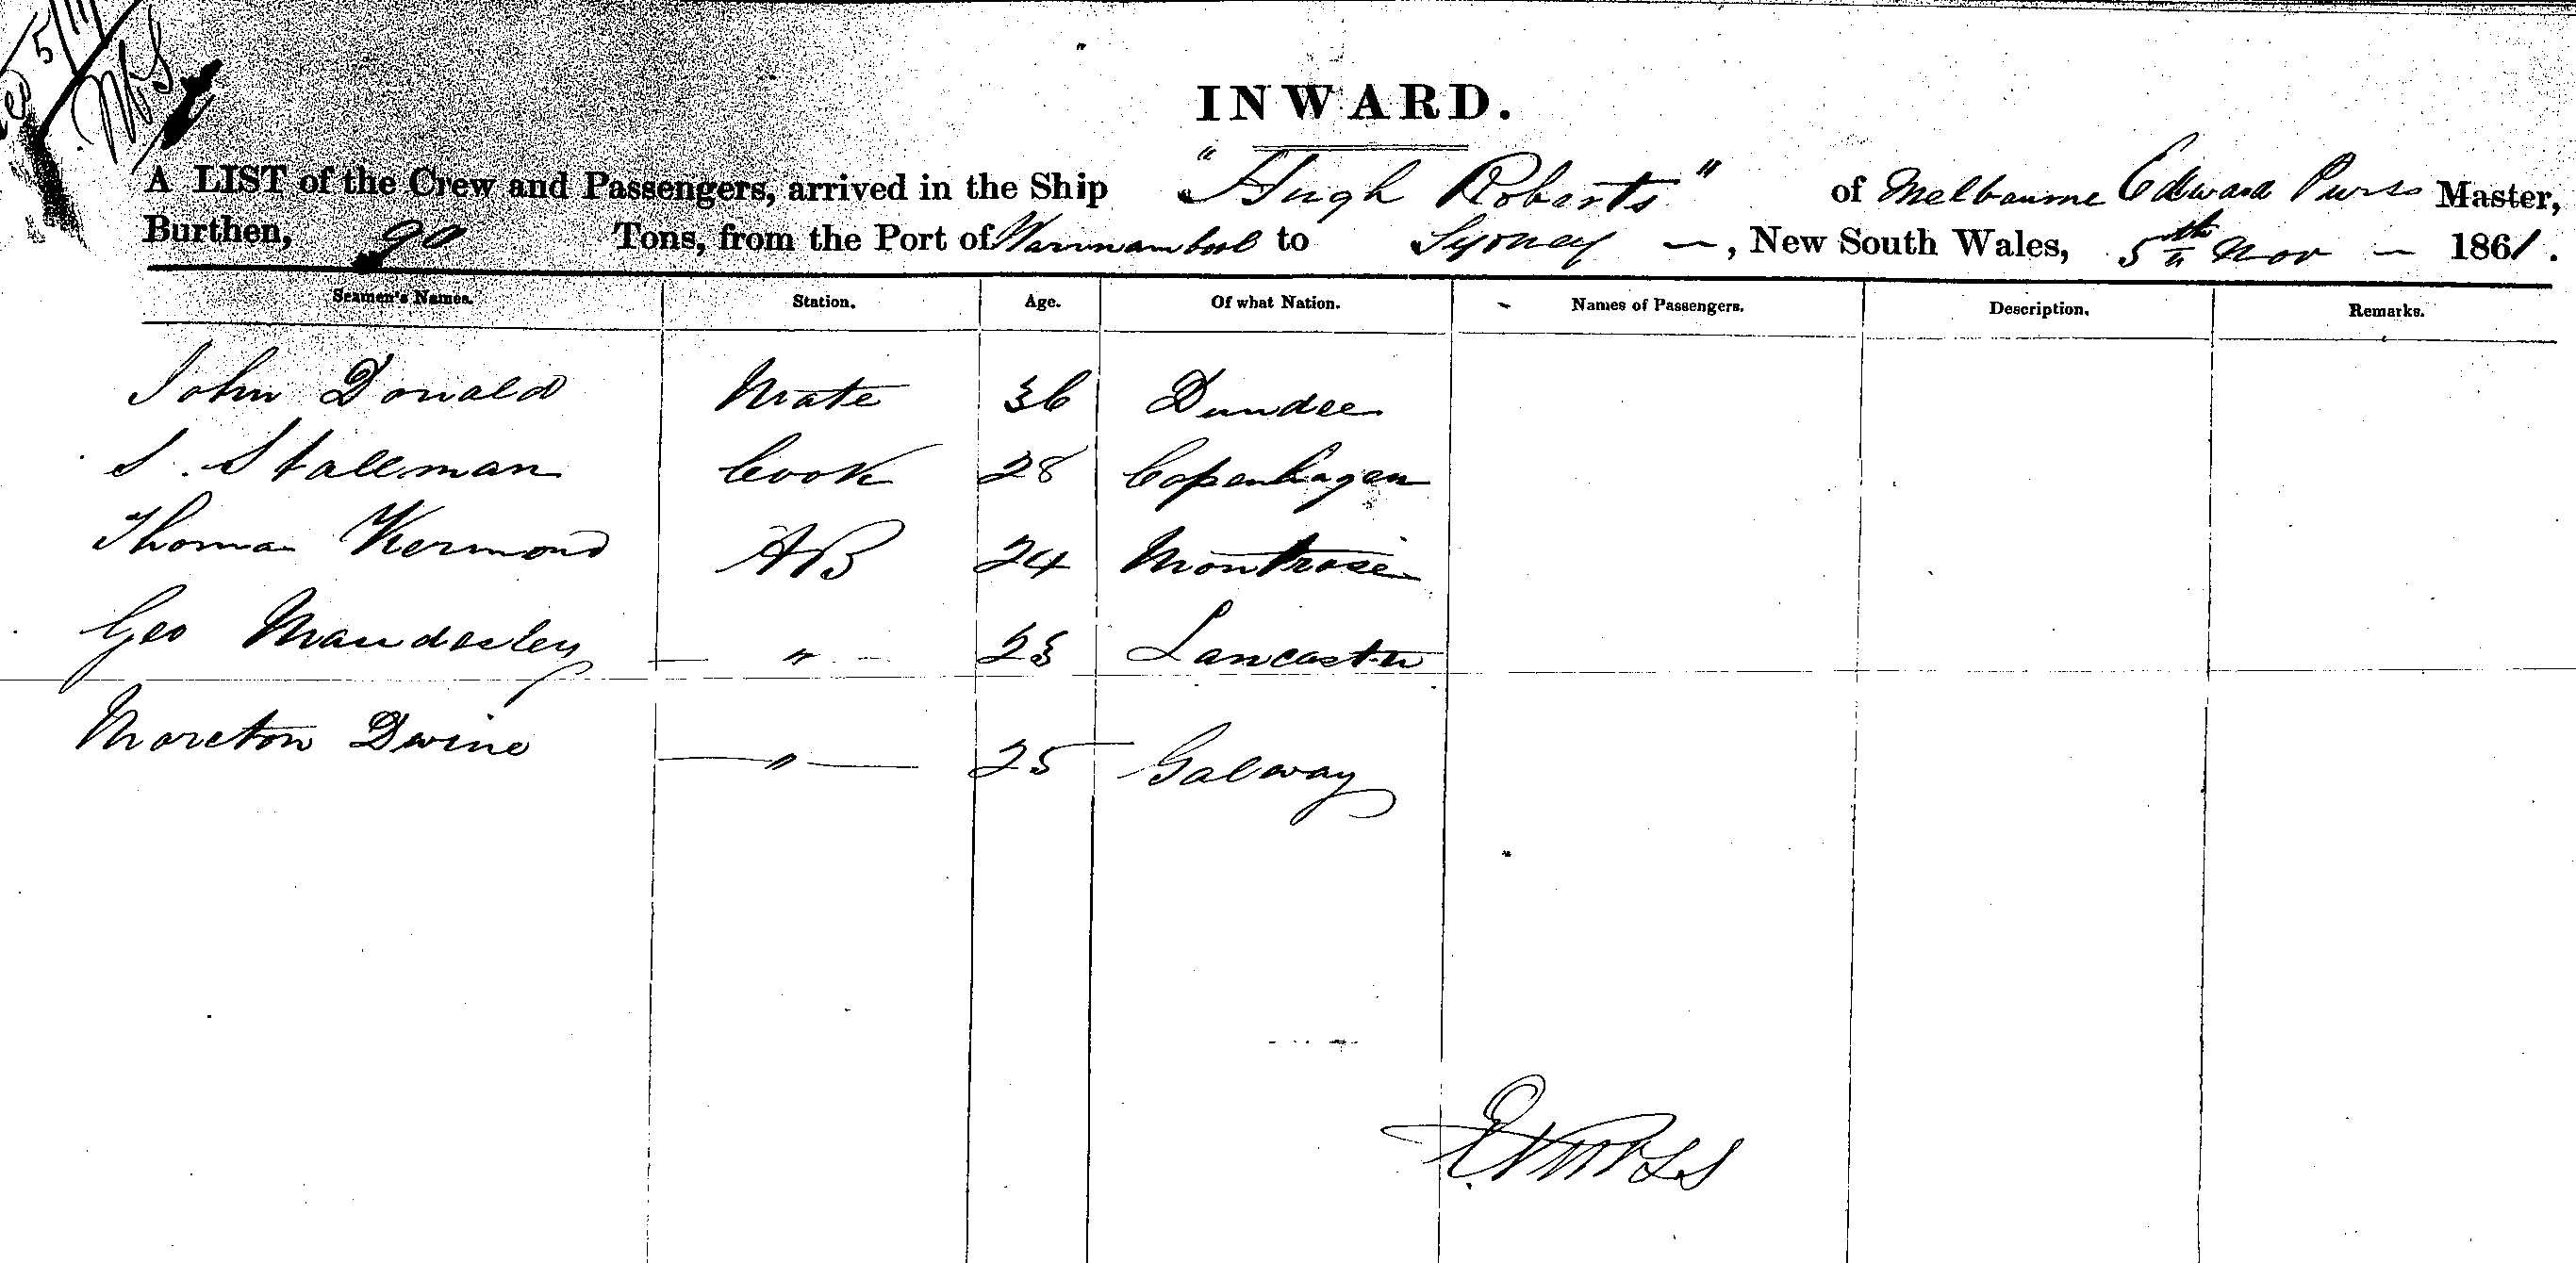 5/11
INWARD.
A LIST of the Crew and Passengers, arrived in the Ship "Hugh Roberts" of Melbourne Edward Purss Master,
Burthen, 90 Tons, from the Port of Warrnambool to Sydney —, New South Wales, 5th Nov — 1861.
Seamen's Names. Station. Age. Of what Nation. Names of Passengers. Description. Remarks.
John Donald Mate 36 Dundee
S. Stallman Cook 28 Copenhagen
Thomas Kermond AB 24 Montrose
Geo Maudesley — " — 23 Lancaster
Moreton Dwine — " — 25 Galway
E Purss